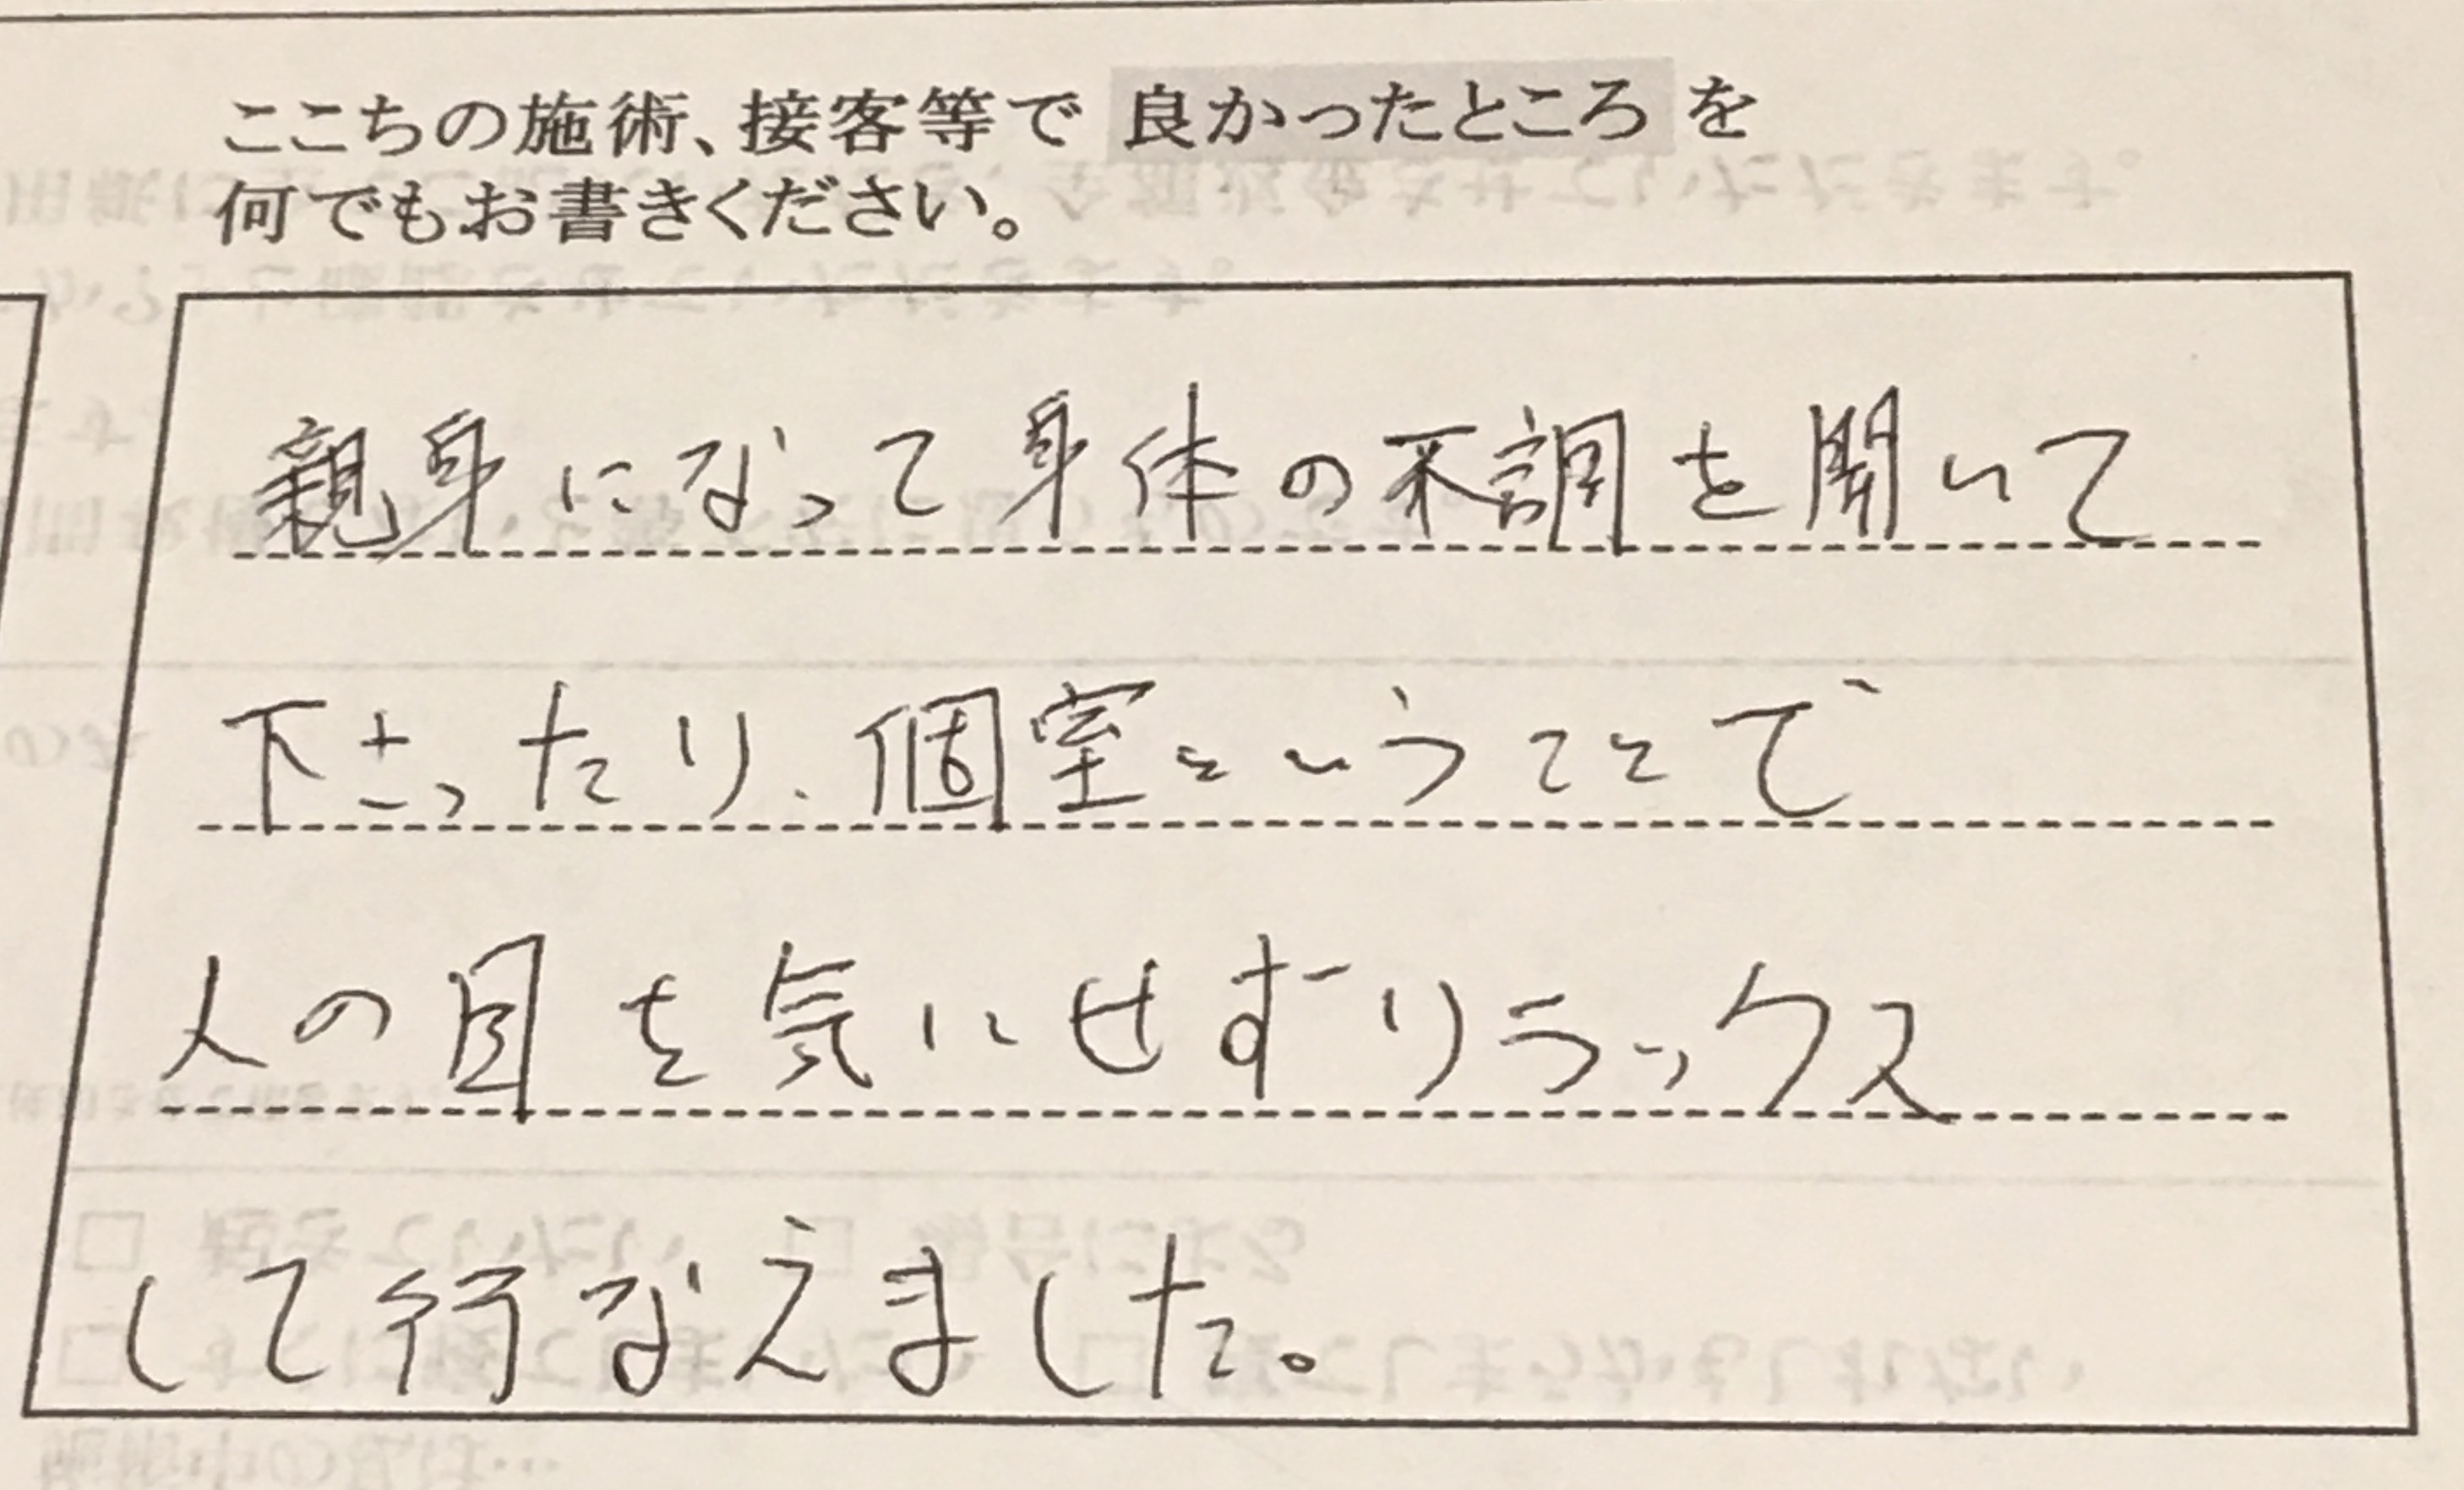 ここちの施術、接客等で 良かったところ を
何でもお書きください。
親身になって身体の不調を聞いて
下さったり、個室ということで
人の目を気にせずリラックス
して行なえました。